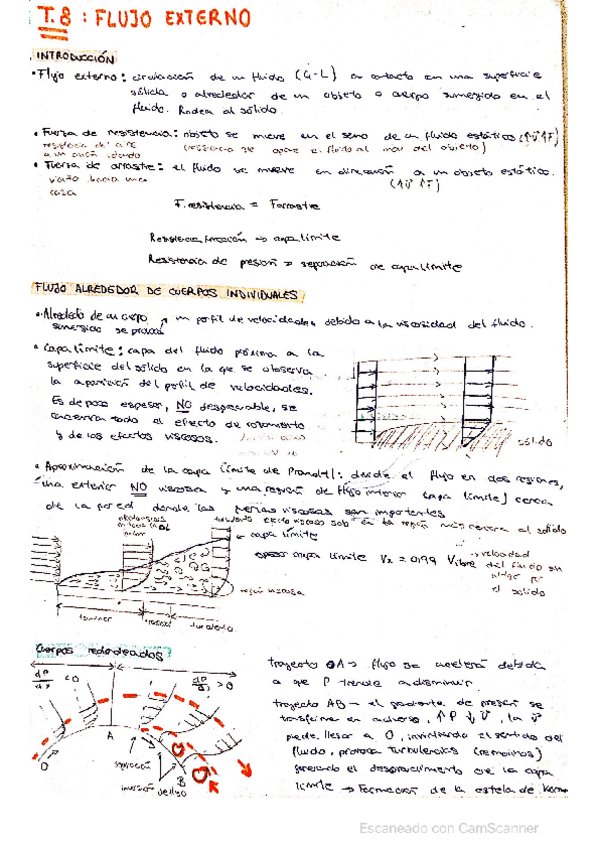 T.8: FLUJO EXTERNO
INTRODUCCIÓN
• Flujo externo: circulación de un fluido (G-L) en contacto con una superficie
sólida o alrededor de un objeto o cuerpo sumergido en el
fluido. Rodea al sólido.
• Fuerza de resistencia: objeto se mueve en el seno de un fluido estático (↑v̄ ↑F)
(resistencia se opone el fluido al mov del objeto)
• Fuerza de arrastre: el fluido se mueve en dirección a un objeto estático.
viento hacia una (↑v̄ ↑F)
casa
F. resistencia = Farrastre
Resistencia fricción → capa límite
Resistencia de presión → separación de capa límite
FLUJO ALREDEDOR DE CUERPOS INDIVIDUALES
• Alrededor de un cuerpo un perfil de velocidades debido a la viscosidad del fluido.
sumergido se produce
• Capa límite: capa del fluido próxima a la
superficie del sólido en la que se observa
la aparición del perfil de velocidades.
Es de poco espesor, NO despreciable, se
concentra todo el efecto de rozamiento
y de los efectos viscosos.
sólido
• Aproximación de la capa límite de Prandtl: divide el flujo en dos regiones,
una exterior NO viscosa y una región de flujo interior (capa límite) cerca
de la pared donde las fuerzas viscosas son importantes
efecto viscoso solo en la región más cercana al sólido
← capa límite
espesor capa límite Vx = 0,99 Vlibre → velocidad
del fluido sin
el sólido
región viscosa
laminar turbulenta
Cuerpos redondeados
dP/dx < 0 dP/dx > 0
O A B
separación
inversión de flujo
trayecto OA → flujo se acelera debido
a que P tiende a disminuir.
trayecto AB - el gradiente de presión se
transforma en adverso, ↑P ↓v̄, la v̄
puede llegar a 0, invirtiendo el sentido del
fluido, provoca turbulencias (remolinos)
generando el desprendimiento de la capa
límite → Formación de la estela de
Escaneado con CamScanner